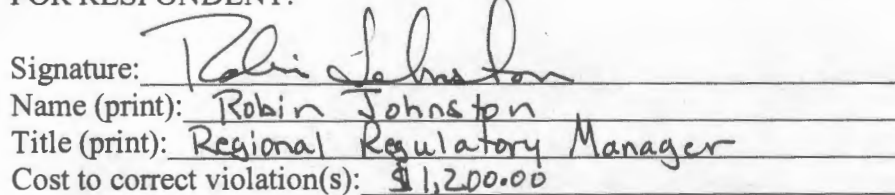 FOR RESPONDENT:
Signature: Robin Johnston
Name (print): Robin Johnston
Title (print): Regional Regulatory Manager
Cost to correct violation(s): $1,200.00